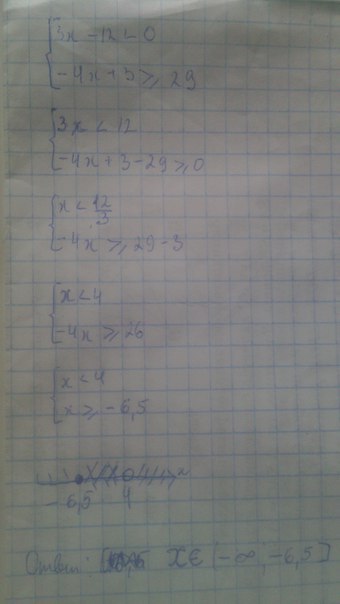 3x - 12 < 0
-4x + 3 ⩾ 29
3x < 12
-4x + 3 - 29 ⩾ 0
x < 12/3
-4x ⩾ 29 - 3
x < 4
-4x ⩾ 26
x < 4
x ⩾ -6,5
x
-6,5 4
Ответ: x ∈ (-∞; -6,5]